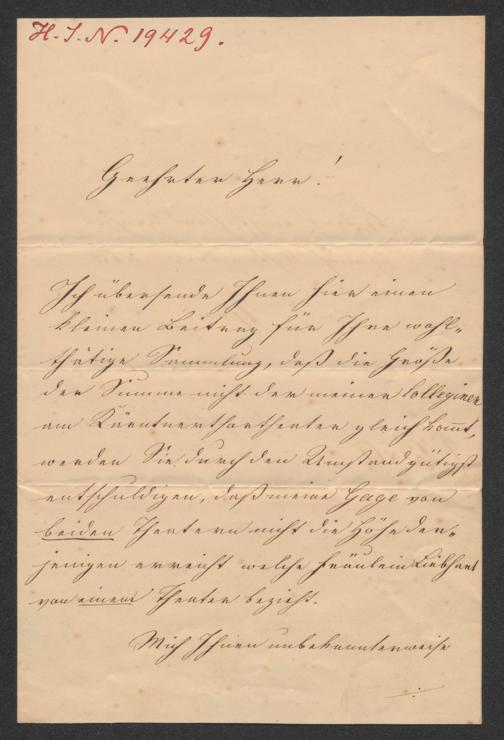 H. I. N. 19429.
Geehrter Herr!
Ich übersende Ihnen hier einen
kleinen Beitrag für Ihre wohl-
thätige Sammlung, daß die Größe
der Summe nicht der meiner Colleginen
am Kärntnerthortheater gleich kommt,
werden Sie durch den Umstand gütigst
entschuldigen, daß meine Gage von
beiden Theatern nicht die Höhe der-
jenigen erreicht welche Fräulein Liebhart
von einem Theater bezieht.
Mich Ihnen unbekannterweise